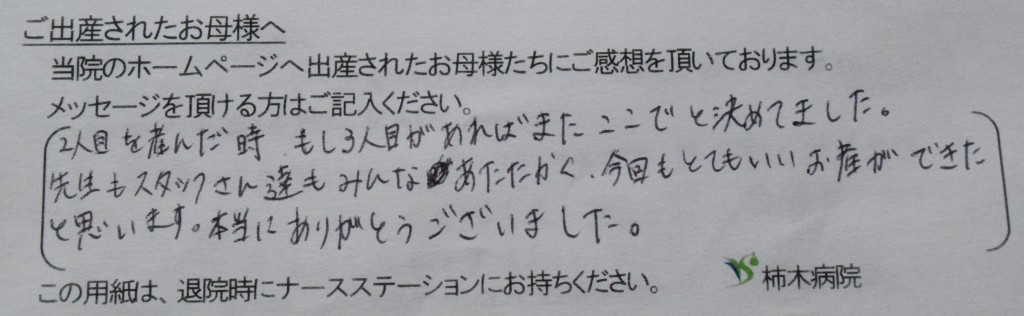 ご出産されたお母様へ
当院のホームページへ出産されたお母様たちにご感想を頂いております。
メッセージを頂ける方はご記入ください。
2人目を産んだ時、もし3人目があればまたここでと決めてました。
先生もスタッフさん達もみんなあたたかく、今回もとてもいいお産ができた
と思います。本当にありがとうございました。
この用紙は、退院時にナースステーションにお持ちください。
柿木病院